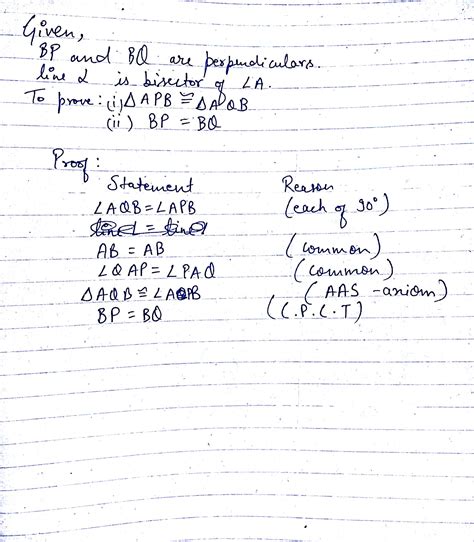 Given,
BP and BQ are perpendiculars.
line l is bisector of ∠A.
To prove: (i) △APB ≅ △AQB
(ii) BP = BQ
Proof:
Statement Reason
∠AQB = ∠APB (each of 90°)
AB = AB (common)
∠QAP = ∠PAQ (common)
△AQB ≅ ∠APB (AAS -axiom)
BP = BQ (C.P.C.T)